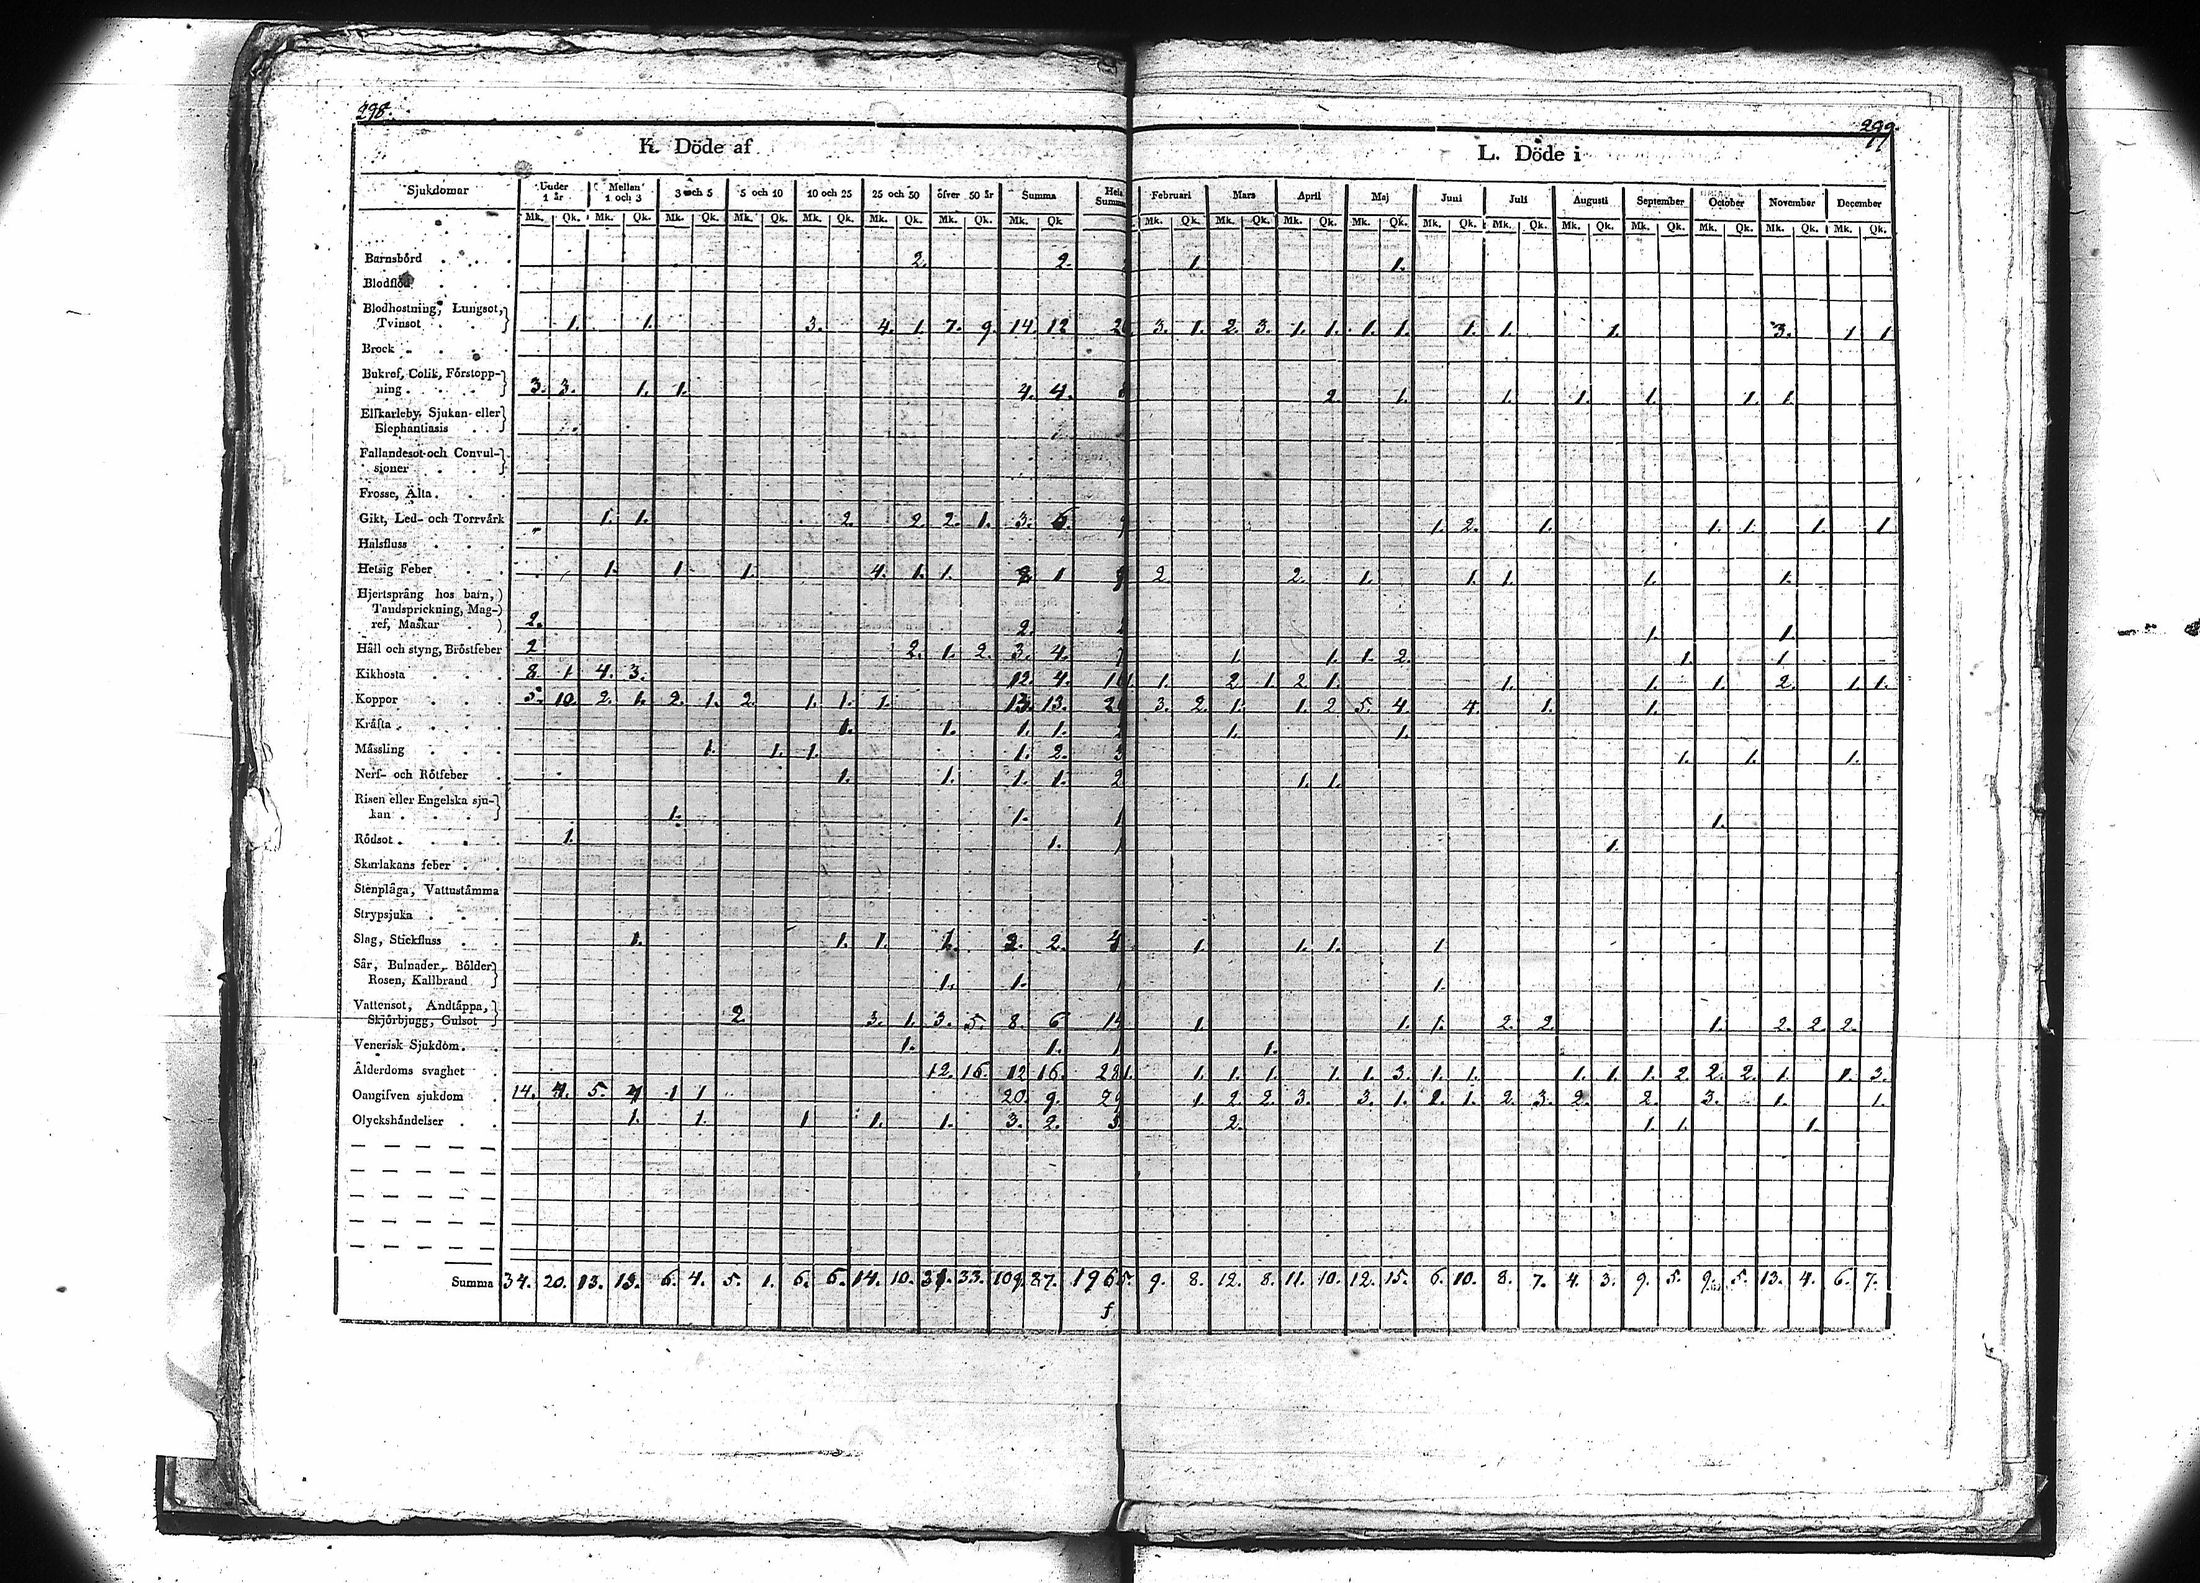 298.
299.
K. Döde af
L. Döde i
Sjukdomar Under 1 år Mellan 1 och 3 3 och 5 5 och 10 10 och 25 25 och 50 öfver 50 år Summa Februari Mars April Maj Juni Juli Augusti September October November December
Mk. Qk. Mk. Qk. Mk. Qk. Mk. Qk. Mk. Qk. Mk. Qk. Mk. Qk. Mk. Qk Mk. Qk. Mk. Qk. Mk. Qk. Mk. Qk. Mk. Qk. Mk. Qk. Mk. Qk. Mk. Qk. Mk. Qk. Mk. Qk. Mk. Qk.
Barnsbörd . . . 2. 2. 1. 1.
Blodflöd . . .
Blodhostning, Lungsot,
Tvinsot . . 1. 1. 3. 4. 1. 7. 9. 14. 12 3. 1. 2. 3. 1. 1. 1. 1. 1. 1. 1. 3. 1. 1
Brock . . . .
Bukref, Colik, Förstopp-
ning . . . . 3. 3. 1. 1. 4. 4. 2 1. 1. 1. 1. 1. 1.
Elfkarleby Sjukan eller
Elephantiasis . .
Fallandesot och Convul-
sioner . . .
Frosse, Älta . . .
Gikt, Led- och Torrvärk 1. 1. 2. 2. 2. 1. 3. 6. 1. 2. 1. 1. 1. 1. 1.
Halsfluss . . .
Hetsig Feber . . 1. 1 1. 4. 1. 1. 1 2. 2. 1. 1. 1. 1. 1.
Hjertsprång hos barn,
Tandsprickning, Mag-
ref, Maskar . 2. 2. 1. 1.
Håll och styng, Bröstfeber 2 2. 1. 2. 3. 4. 1. 1. 1. 2. 1. 1.
Kikhosta . . . 8 1. 4. 3. 12. 4. 1. 2. 1. 2. 1. 1. 1. 1. 2. 1. 1.
Koppor . . . 5. 10. 2. 1. 2. 1. 2. 1. 1. 1. 13. 13. 3. 2. 1. 1. 2 5. 4. 4. 1. 1.
Kräfta . . . . 1. 1. 1. 1. 1. 1.
Mässling . . . 1. 1. 1. 1. 2. 3 1. 1. 1.
Nerf- och Rötfeber . 1. 1. 1. 1. 2 1. 1.
Risen eller Engelska sju-
kan . . . . 1. 1. 1 1.
Rödsot . . . . 1. 1. 1 1.
Skarlakans feber . .
Stenplåga, Vattustämma
Strypsjuka . . .
Slag, Stickfluss . . 1. 1. 1. 1. 2. 2. 4 1. 1. 1. 1
Sår, Bulnader, Bölder
Rosen, Kallbrand 1. 1. 1.
Vattensot, Andtäppa,
Skjörbjugg, Gulsot 2. 3. 1. 3. 5. 8. 6 14 1. 1. 1. 2. 2. 1. 2. 2. 2.
Venerisk Sjukdom . . 1. 1. 1 1.
Ålderdoms svaghet . 12. 16. 12 16. 28 1. 1. 1. 1. 1. 3. 1. 1. 1. 1. 1. 2. 2. 2. 1. 1. 3.
Oangifven sjukdom . 14. 4. 5. 4 1 1 20. 9. 29 1. 2. 2. 3. 3. 1. 1. 1. 2. 3. 2. 2. 3. 1. 1.
Olyckshändelser . . 1. 1. 1 1. 1. 3. 2. 2. 1. 1. 1.
Summa 34. 20. 13. 13. 6. 4. 5. 1. 6. 6. 14. 10. 31. 33. 109. 87. 196 5. 9. 8. 12. 8. 11. 10. 12. 15. 6. 10. 8. 7. 4. 3. 9. 5. 9. 5. 13. 4. 6. 7.